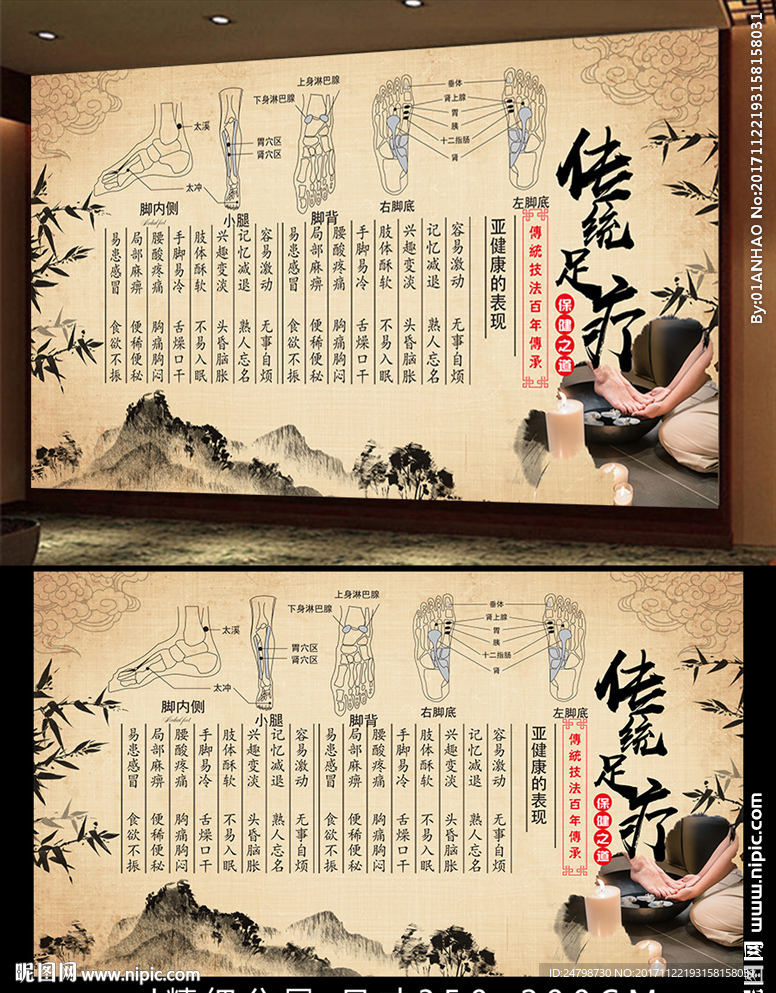 By:01ANHAO No:20171122193158158031
上身淋巴腺
下身淋巴腺
太溪
胃穴区
肾穴区
太冲
垂体
肾上腺
胃
胰
十二指肠
肾
脚内侧
小腿
脚背
右脚底
左脚底
传统足疗
保健之道
傳統技法百年傳承
亚健康的表现
容易激动 无事自烦
记忆减退 熟人忘名
兴趣变淡 头昏脑胀
肢体酥软 不易入眠
手脚易冷 舌燥口干
腰酸疼痛 胸痛胸闷
局部麻痹 便稀便秘
易患感冒 食欲不振
容易激动 无事自烦
记忆减退 熟人忘名
兴趣变淡 头昏脑胀
肢体酥软 不易入眠
手脚易冷 舌燥口干
腰酸疼痛 胸痛胸闷
局部麻痹 便稀便秘
易患感冒 食欲不振
上身淋巴腺
下身淋巴腺
太溪
胃穴区
肾穴区
太冲
垂体
肾上腺
胃
胰
十二指肠
肾
脚内侧
小腿
脚背
右脚底
左脚底
传统足疗
保健之道
傳統技法百年傳承
亚健康的表现
容易激动 无事自烦
记忆减退 熟人忘名
兴趣变淡 头昏脑胀
肢体酥软 不易入眠
手脚易冷 舌燥口干
腰酸疼痛 胸痛胸闷
局部麻痹 便稀便秘
易患感冒 食欲不振
容易激动 无事自烦
记忆减退 熟人忘名
兴趣变淡 头昏脑胀
肢体酥软 不易入眠
手脚易冷 舌燥口干
腰酸疼痛 胸痛胸闷
局部麻痹 便稀便秘
易患感冒 食欲不振
www.nipic.com
昵图网 www.nipic.com
ID:24798730 NO:20171122193158158031